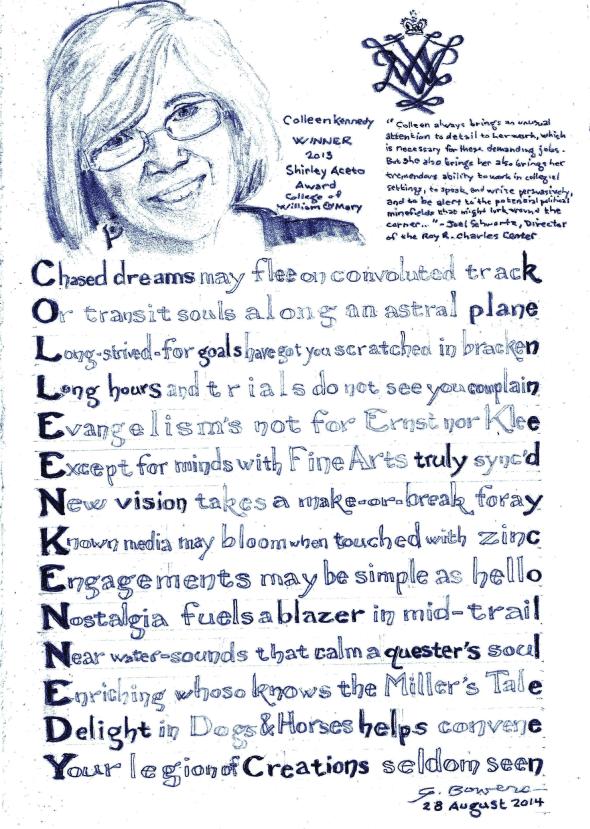 Colleen Kennedy
WINNER
2013
Shirley Aceto
Award
College of
William & Mary
"Colleen always brings an unusual
attention to detail to her work, which
is necessary for these demanding jobs.
But she also brings her also brings her
tremendous ability to work in collegial
settings, to speak and write persuasively,
and to be alert to the potential political
minefields that might lurk around the
corner..." - Joel Schwartz, Director
of the Roy R. Charles Center
Chased dreams may flee on convoluted track
Or transit souls along an astral plane
Long-strived-for goals have got you scratched in bracken
Long hours and trials do not see you complain
Evangelism's not for Ernst nor Klee
Except for minds with Fine Arts truly sync'd
New vision takes a make-or-break foray
Known media may bloom when touched with zinc
Engagements may be simple as hello
Nostalgia fuels a blazer in mid-trail
Near water-sounds that calm a quester's soul
Enriching whoso knows the Miller's Tale
Delight in Dogs & Horses helps convene
Your legion of Creations seldom seen
G. Bowers
28 August 2014